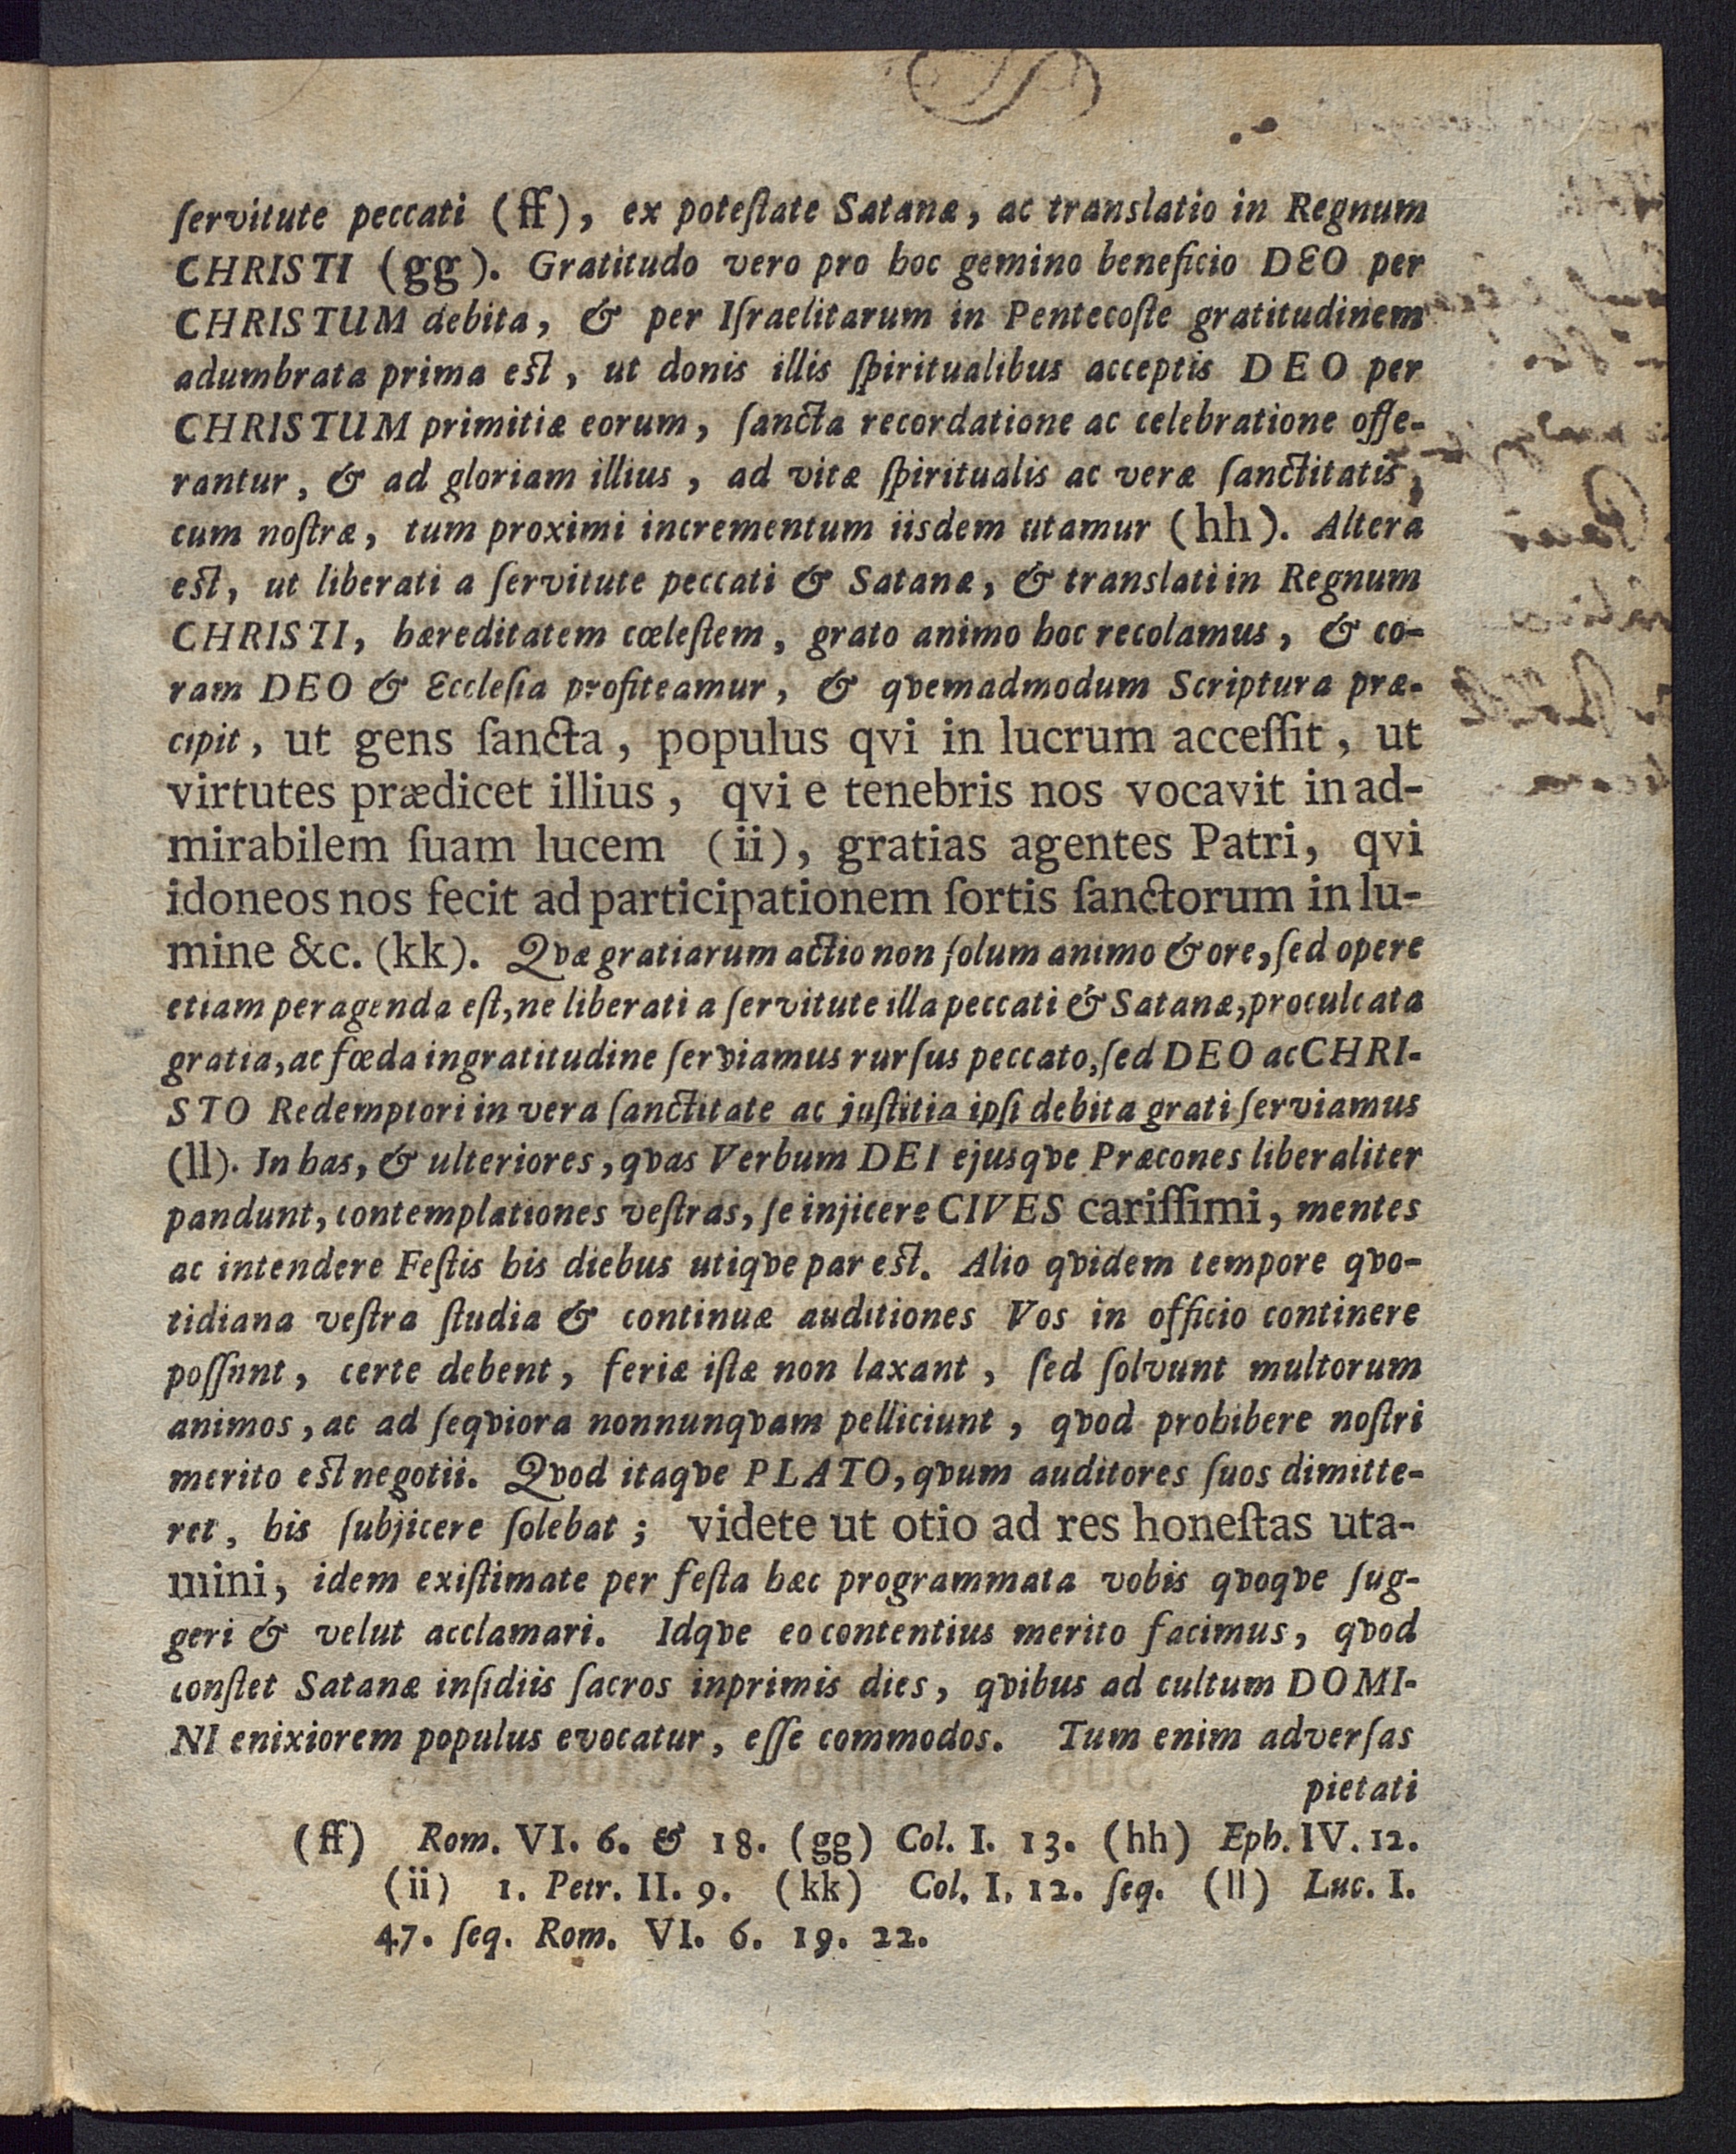 ſervitute peccati (ff), ex poteſtate Satanæ, ac translatio in Regnum
CHRISTI (gg). Gratitudo vero pro hoc gemino beneficio DEO per
CHRISTUM debita, & per Iſraelitarum in Pentecoſte gratitudinem
adumbrata prima eſt, ut donis illis ſpiritualibus acceptis DEO per
CHRISTUM primitiæ eorum, ſancta recordatione ac celebratione offe-
rantur, & ad gloriam illius, ad vitæ ſpiritualis ac veræ ſanctitatis,
cum noſtræ, tum proximi incrementum iisdem utamur (hh). Altera
eſt, ut liberati a ſervitute peccati & Satanæ, & translati in Regnum
CHRISTI, hæreditatem cœleſtem, grato animo hoc recolamus, & co-
ram DEO & Eccleſia profiteamur, & qvemadmodum Scriptura præ-
cipit, ut gens ſancta, populus qvi in lucrum acceſſit, ut
virtutes prædicet illius, qvi e tenebris nos vocavit in ad-
mirabilem ſuam lucem (ii), gratias agentes Patri, qvi
idoneos nos fecit ad participationem ſortis ſanctorum in lu-
mine &c. (kk). Qvæ gratiarum actio non ſolum animo & ore, ſed opere
etiam peragenda eſt, ne liberati a ſervitute illa peccati & Satanæ, proculcata
gratia, ac fœda ingratitudine ſerviamus rurſus peccato, ſed DEO ac CHRI-
STO Redemptori in vera ſanctitate ac juſtitia ipſi debita grati ſerviamus
(ll). In has, & ulteriores, qvas Verbum DEI ejusqve Præcones liberaliter
pandunt, contemplationes veſtras, ſe injicere CIVES cariſſimi, mentes
ac intendere Feſtis his diebus utiqve par eſt. Alio qvidem tempore qvo-
tidiana veſtra ſtudia & continuæ auditiones Vos in officio continere
poſſunt, certe debent, feriæ iſtæ non laxant, ſed ſolvunt multorum
animos, ac ad ſeqviora nonnunqvam pelliciunt, qvod prohibere noſtri
merito eſt negotii. Qvod itaqve PLATO, qvum auditores ſuos dimitte-
ret, his ſubjicere ſolebat; videte ut otio ad res honeſtas uta-
mini, idem exiſtimate per feſta hæc programmata vobis qvoqve ſug-
geri & velut acclamari. Idqve eo contentius merito facimus, qvod
conſtet Satanæ inſidiis ſacros inprimis dies, qvibus ad cultum DOMI-
NI enixiorem populus evocatur, eſſe commodos. Tum enim adverſas
pietati
(ff) Rom. VI. 6. & 18. (gg) Col. I. 13. (hh) Eph. IV. 12.
(ii) 1. Petr. II. 9. (kk) Col. I. 12. ſeq. (ll) Luc. I.
47. ſeq. Rom. VI. 6. 19. 22.